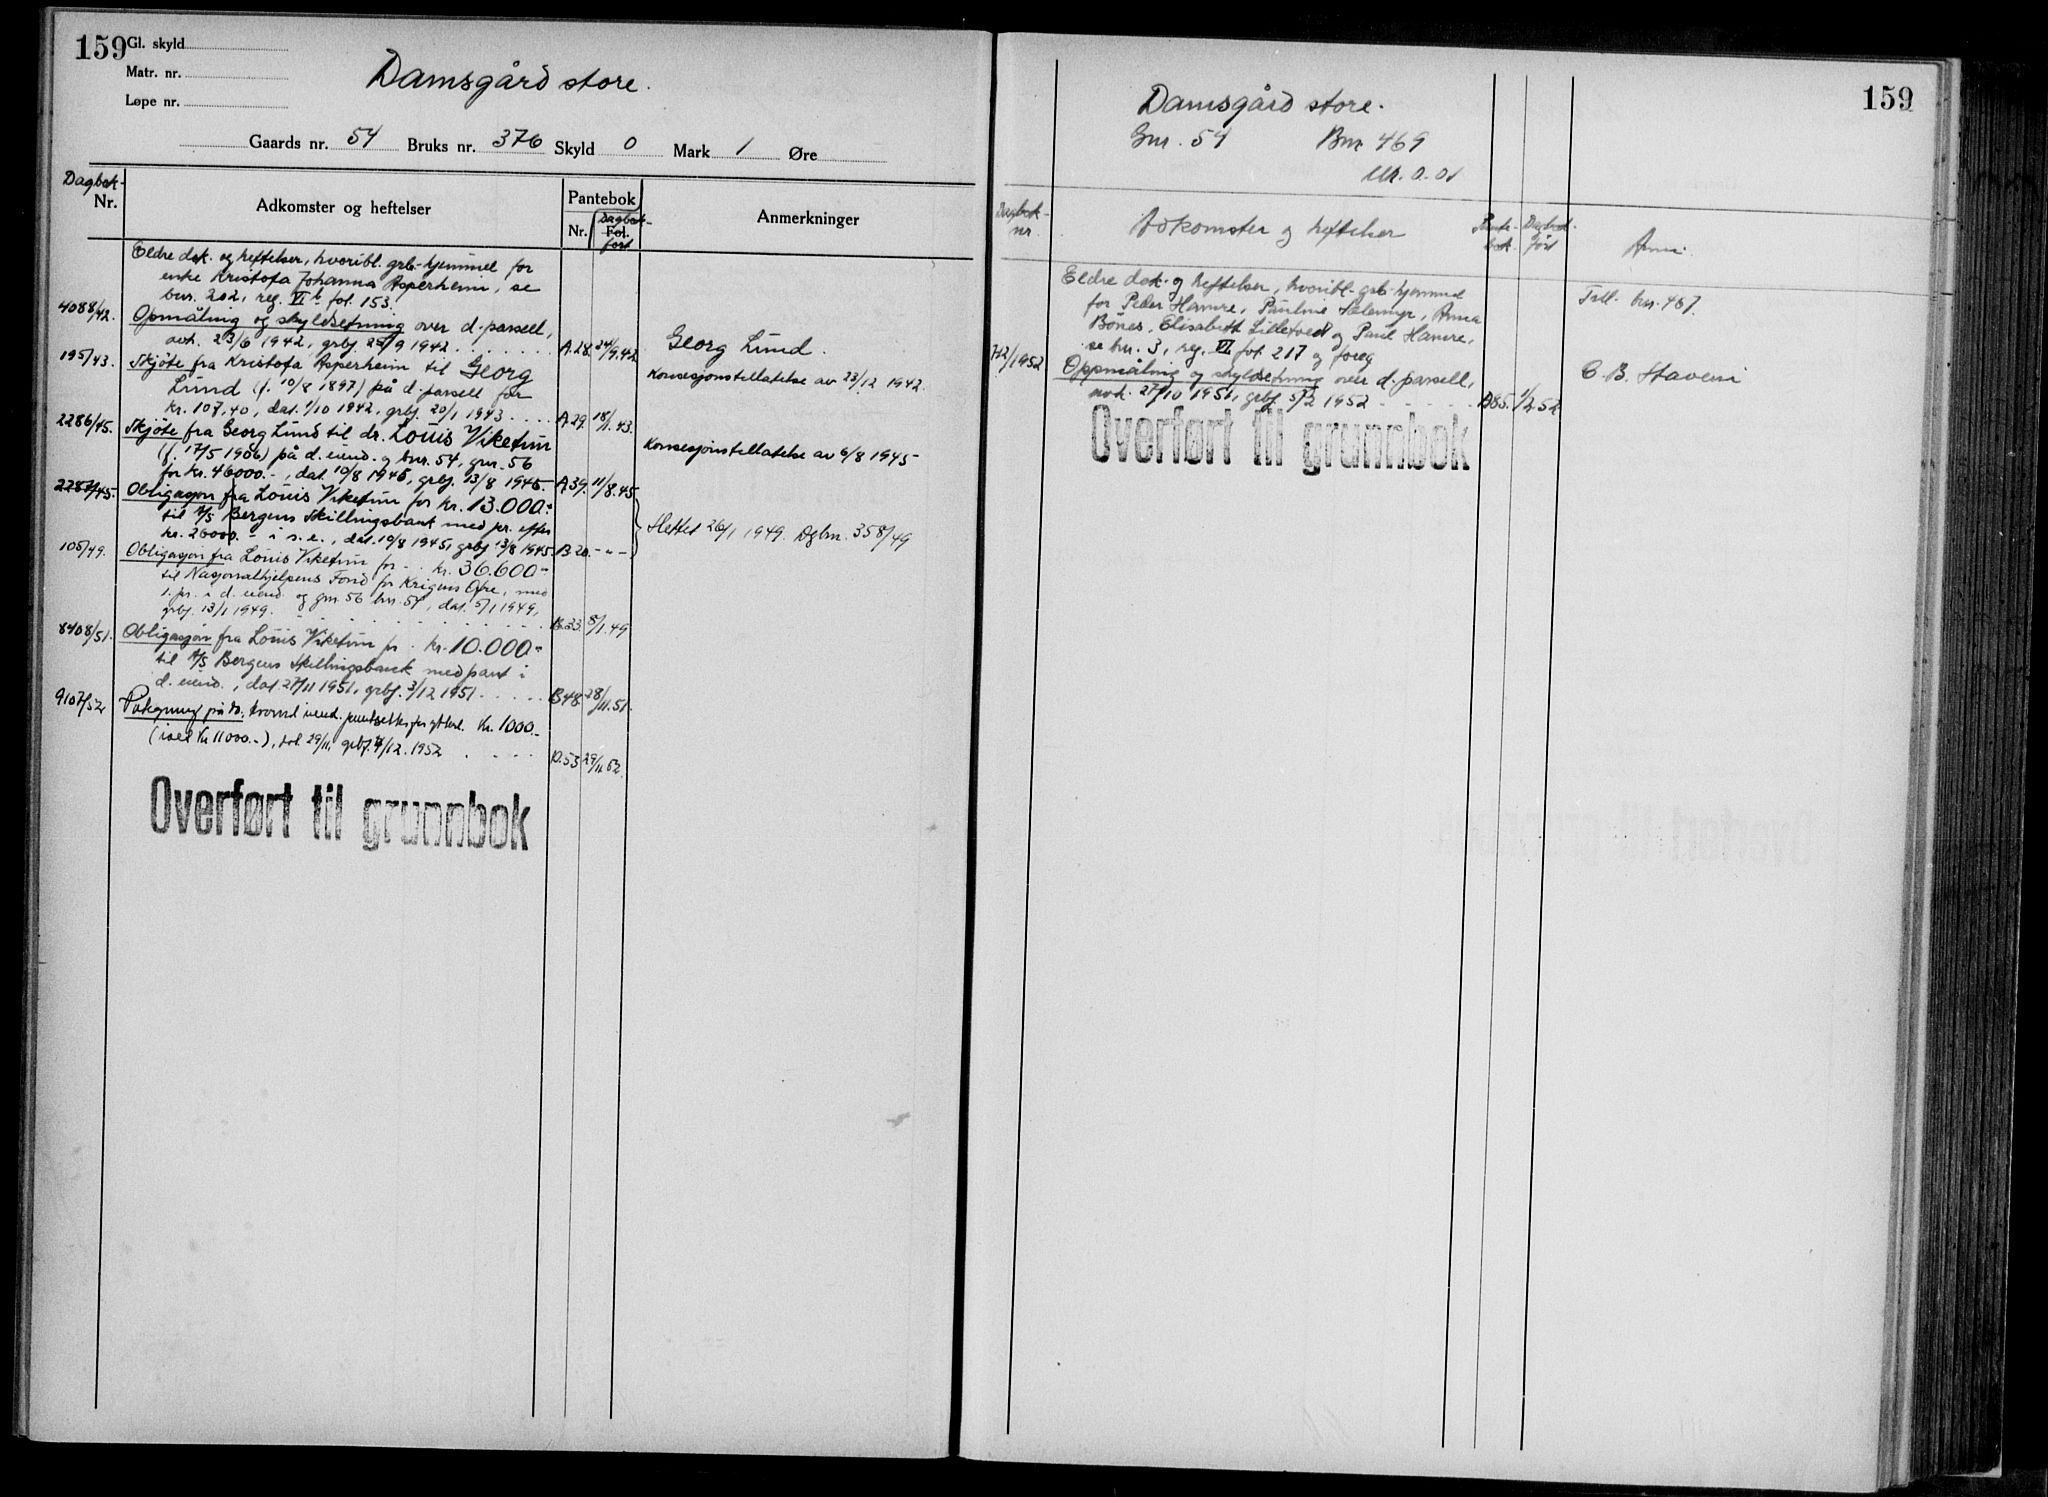 159 Gl. skyld
Matr. nr.
Løpe nr.
Damsgård store.
Gaards nr. 54 Bruks nr. 376 Skyld 0 Mark 1 Øre
Dagbok-
Nr.
Adkomster og heftelser
Pantebok
Nr.
Dagbok-
Fol.
ført
Anmerkninger
Eldre dok. og heftelser, hvoribl. grb.-hjemmel for
enke Kristofa Johanna Asperheim, se
bnr. 202, reg. VI b fol. 153.
4088/42. Opmåling og skyldsetning over d. parsell,
avh. 23/6 1942, grbf. 25/9 1942 A.28. 24/9.42 Georg Lund.
195/43. Skjøte fra Kristofa Asperheim til Georg
Lund (f. 10/8 1897) på d. parsell for
kr. 107,40, dat. 1/10 1942, grbf. 20/1 1943. A.29. 18/1.43.
Konsesjonstillatelse av 23/12 1942.
2286/45. Skjøte fra Georg Lund til dr. Louis Viketun
(f. 17/5 1906) på d. eiend. og bnr. 54, gnr. 56
for kr. 46000.-, dat. 10/8 1945, grbf. 13/8 1945. A.39. 11/8.45
Konsesjonstillatelse av 6/8 1945
2287/45. Obligasjon fra Louis Viketun for kr. 13.000.-
til A/S Bergens Skillingsbank med pr. efter
kr. 26000.- i s. e., dat. 10/8 1945, grbf. 13/8 1945. B.20. -"-
Slettet 26/1 1949. Dgbnr. 358/49
105/49. Obligasjon fra Louis Viketun for kr. 36.600.-
til Nasjonalhjelpens Fond for Krigens Ofre, med
1. pr. i d. eiend. og gnr. 56 bnr. 54, dat. 5/1 1949,
grbf. 13/1 1949. B.33. 8/1.49
8408/51. Obligasjon fra Louis Viketun for kr. 10.000.-
til A/S Bergens Skillingsbank med pant i
d. eiend., dat. 27/11 1951, grbf. 3/12 1951. B48. 28/11.51.
9107/52 Påtegning på do. hvorved eiend. pantsettes for ytterl. Kr. 1000.-
(ialt kr 11000.-), dat. 29/11, grbf. 4/12. 1952 B.53 29/11 52.
Overført til grunnbok
159
Damsgård store.
Gnr. 54 Bnr. 469
M. 0.01
Dagbok-
nr.
Adkomster og heftelser
Pante-
bok.
Dagbok-
ført
Anm.
Eldre dok. og heftelser, hvoribl. grb.-hjemmel
for Peder Hamre, Pauline Sælemyr, Anna
Bönes, Elisabeth Lilletvedt og Paul Hamre,
se bnr. 3, reg. VI fol. 217 og foreg.
Till. bnr. 467.
712/1952 Oppmåling og skyldsetning over d. parsell,
avh. 27/10 1951, grbf. 5/2 1952 A85. 1/2 52. C. B. Staveni
Overført til grunnbok